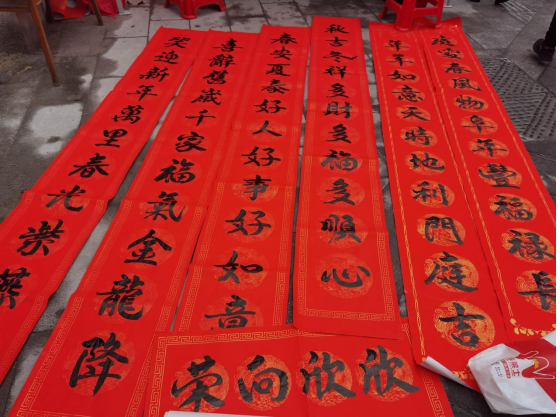 安春風物阜年豐福祿長
年年如意天時地利門庭吉
秋吉冬祥多財多福多順心
春安夏泰好人好事好如意
喜辭舊歲千家福氣金龍降
笑迎新年萬里春光榮
欣欣向荣